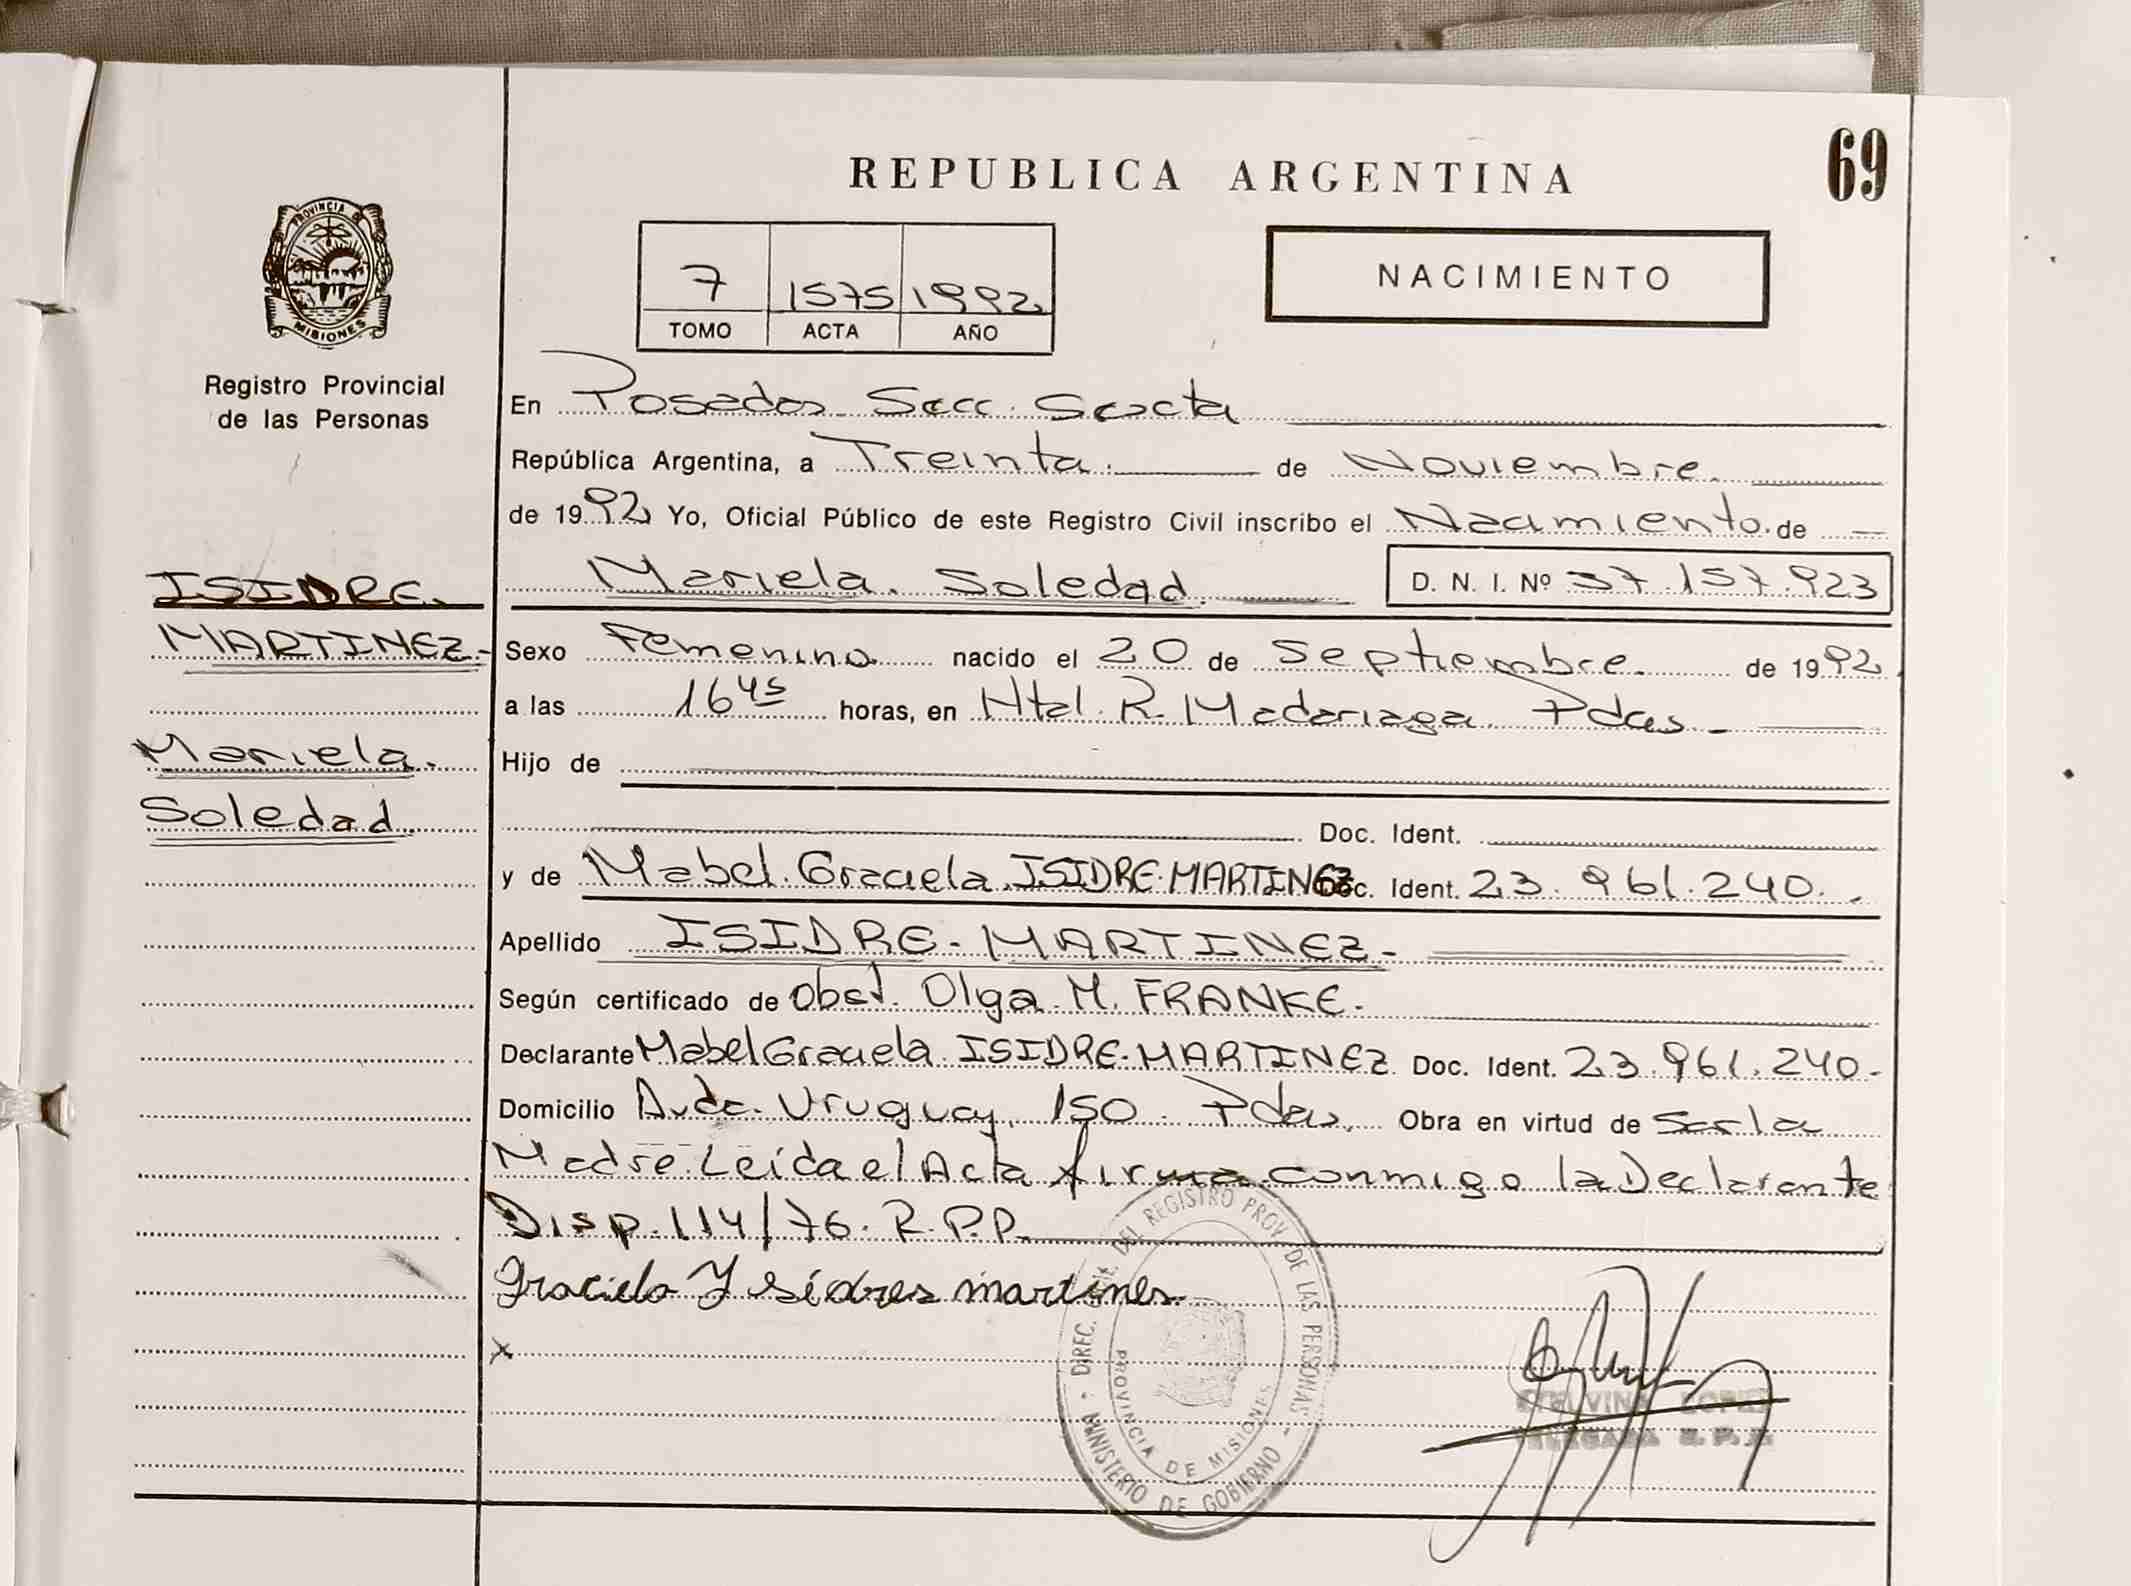 69
REPUBLICA ARGENTINA
PROVINCIA DE
MISIONES
Registro Provincial
de las Personas
7 1575 1992
TOMO ACTA AÑO
NACIMIENTO
En Posadas Secc. Sexta
República Argentina, a Treinta. de Noviembre.
de 1992 Yo, Oficial Público de este Registro Civil inscribo el Nacimiento. de
Mariela. Soledad. D. N. I. Nº 37.157.923
ISIDRE.
MARTINEZ-
Mariela.
Soledad.
Sexo Femenino nacido el 20 de Septiembre. de 1992
a las 16 45 horas, en Htal. R. Madariaga. Pdas -
Hijo de
Doc. Ident.
y de Mabel. Graciela. ISIDRE-MARTINEZ Doc. Ident. 23.961.240.
Apellido ISIDRE-MARTINEZ-
Según certificado de Obst. Olga. M. FRANKE.
Declarante Mabel Graciela. ISIDRE-MARTINEZ Doc. Ident. 23.961.240.-
Domicilio Avda. Uruguay. 150. Pdas. Obra en virtud de Ser la
Madre. Leída el Acta firma conmigo la Declarante
Disp. 114/76. R.P.P.
Graciela Y sidres martines.
x
DEL REGISTRO PROV. DE LAS PERSONAS - MINISTERIO DE GOBIERNO - DIREC.
PROVINCIA DE MISIONES